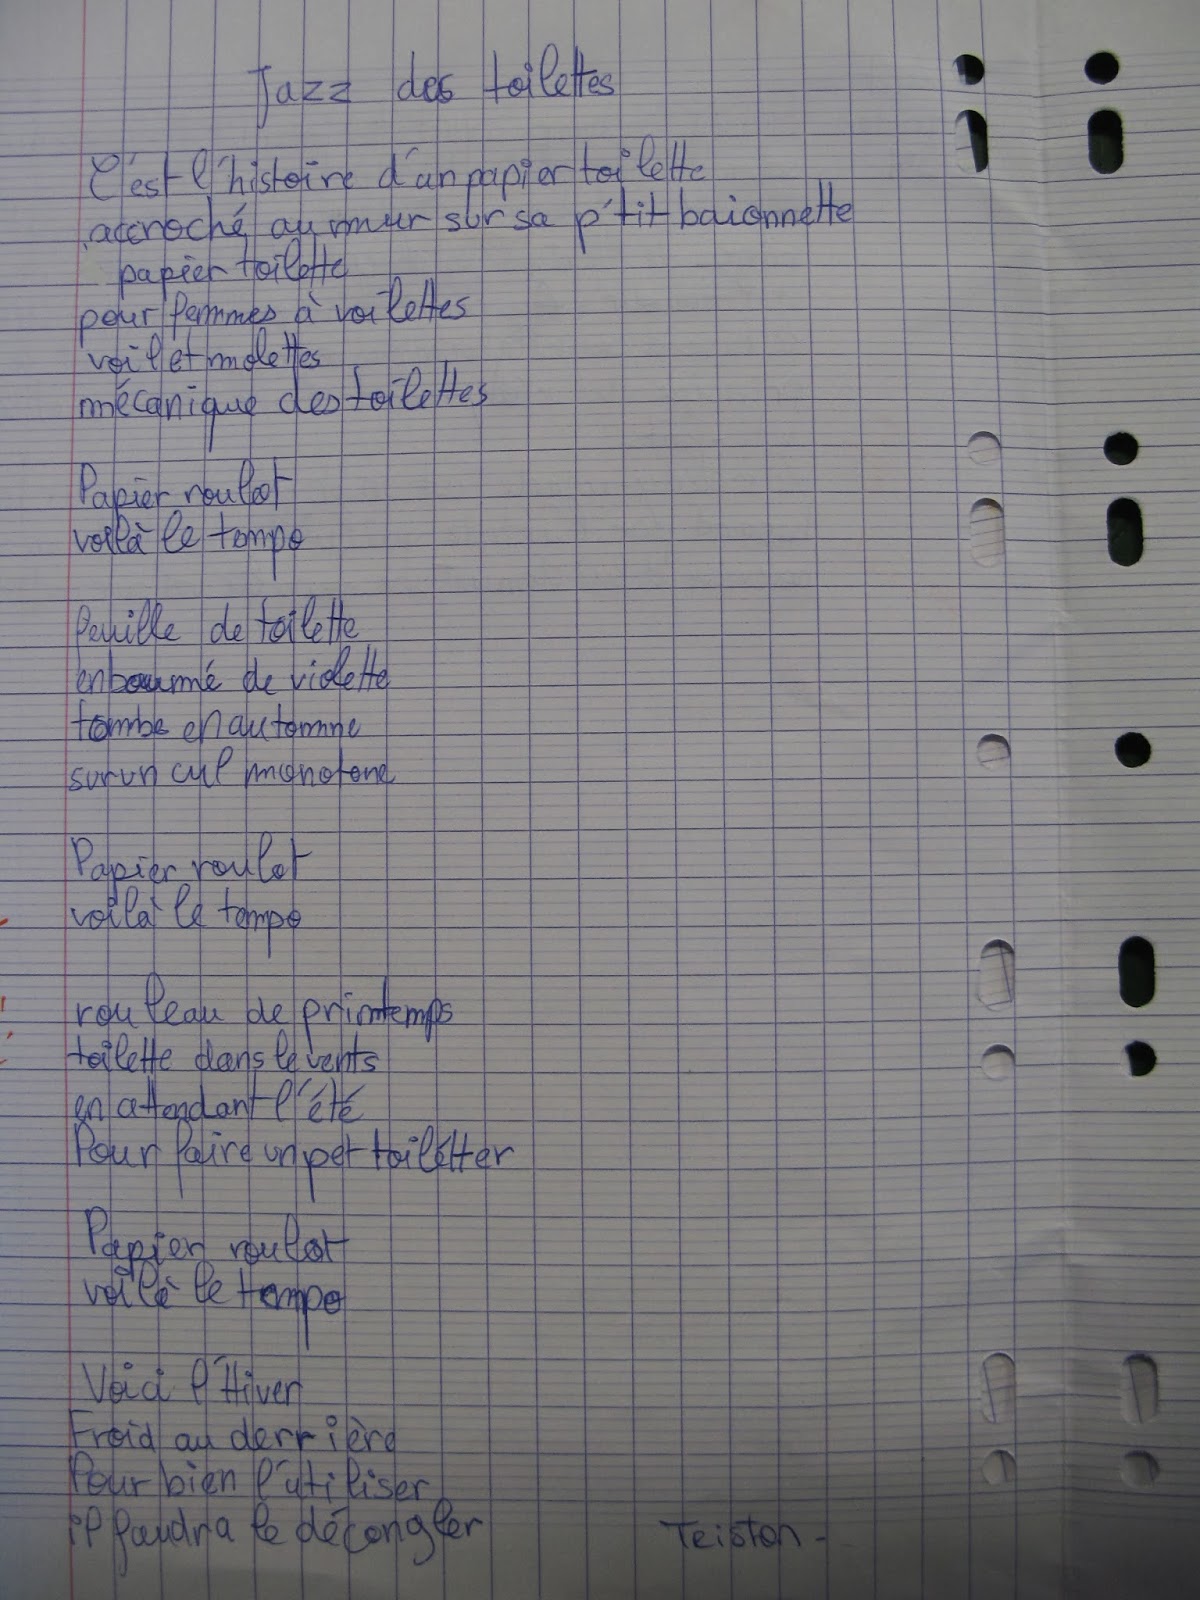 Jazz des toilettes
C'est l'histoire d'un papier toilette
accroché au mur sur sa p'tit baionnette
papier toilette
pour femmes à voilettes
voil et molettes
mécanique des toilettes
Papier roulot
voilà le tempo
feuille de toilette
enboumé de violette
tombe en automne
sur un cul monotone
Papier roulot
voilà le tempo
rouleau de printemps
toilette dans le vents
en attendant l'été
Pour faire un pet toiletter
Papier roulot
voilà le tempo
Voici l'Hiver
Froid au derrière
Pour bien l'utiliser
il faudra le décongler
Teiston -